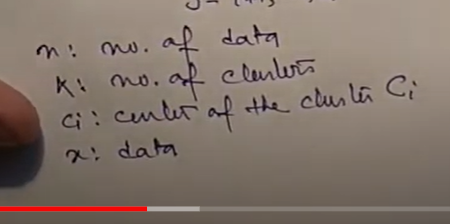 n: no. of data
K: no. of clusters
ci: center of the cluster Ci
x: data